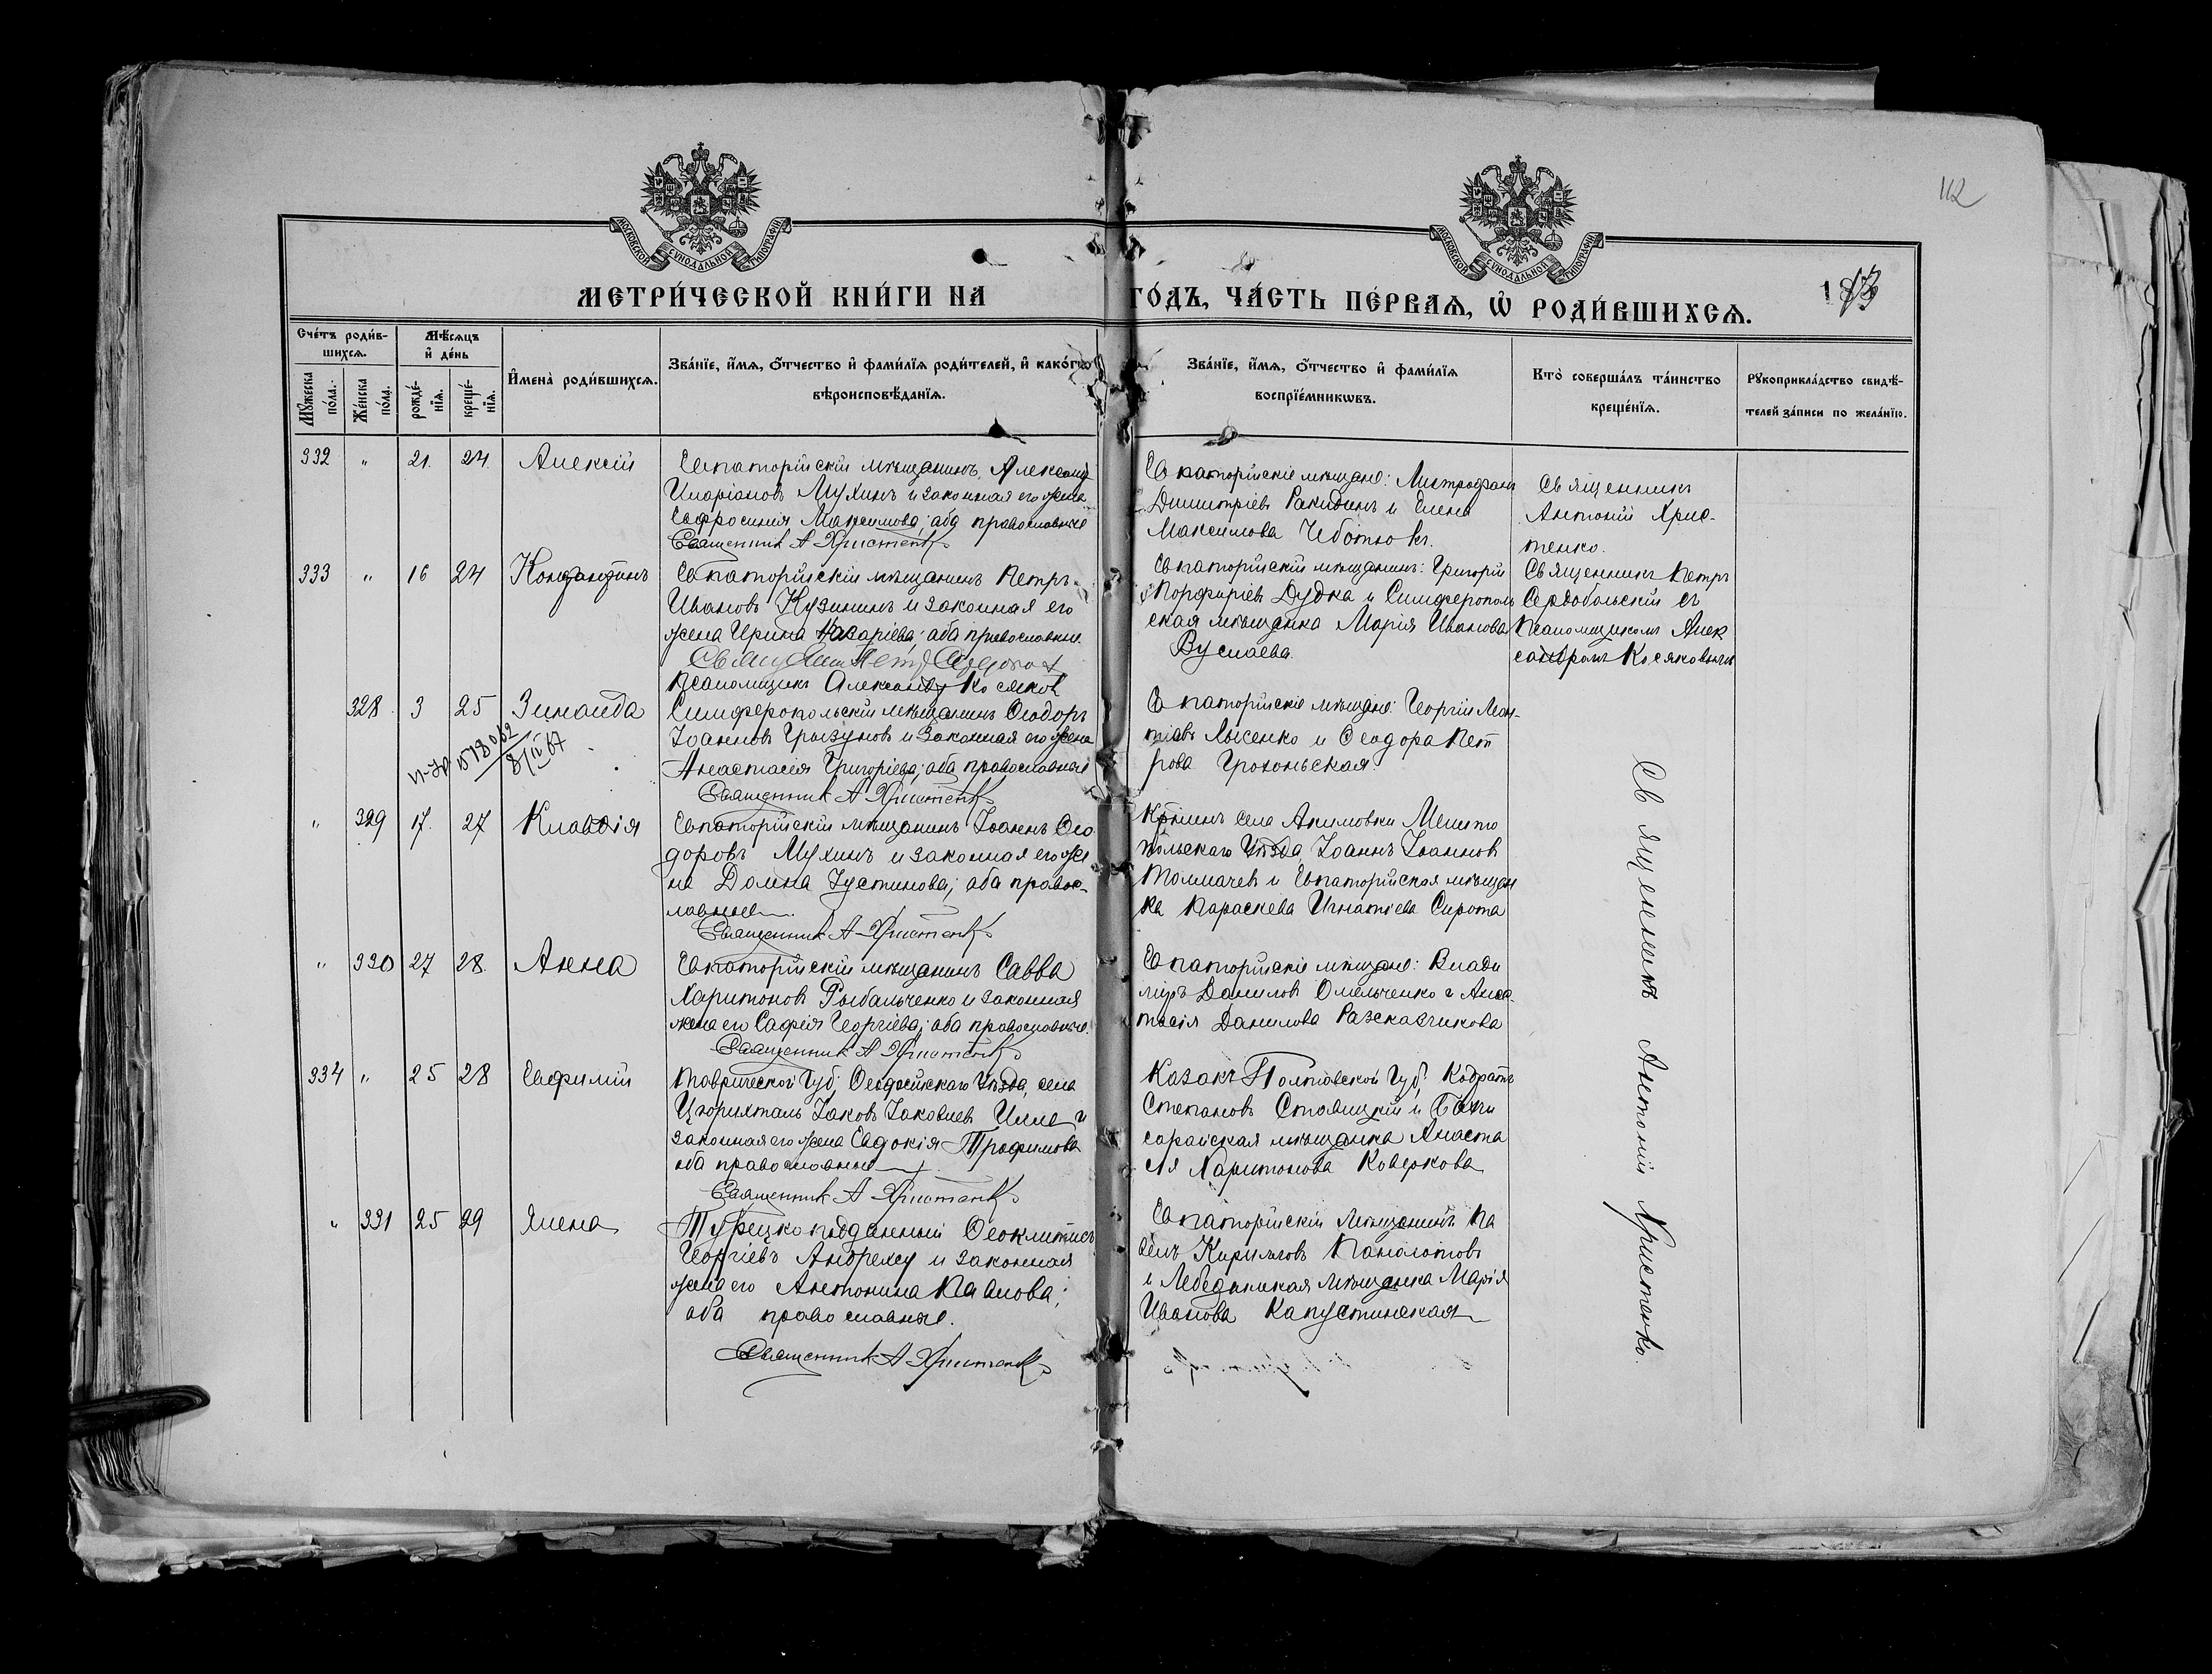 112
МОСКОВСКОЙ СѴНОДАЛЬНОЙ ТИПОГРАФІИ
МОСКОВСКОЙ СѴНОДАЛЬНОЙ ТИПОГРАФІИ
МЕТРИ́ЧЕСКОЙ КНИ́ГИ НА
ГО́ДЪ, ЧА́СТЬ ПЕ́РВАЯ, Ѡ҆ РОДИ́ВШИХСЯ.
Сче́тъ роди́в-
шихся.
Мꙋжеска по́ла.
Же́нска по́ла.
Мѣ́сяцъ и҆ де́нь
рожде́-
нїя.
креще́-
нїя.
И҆мена̀ роди́вшихся.
Зва́нїе, и҆́мя, ѻ҆́тчество и҆ фами́лїя роди́телей, и҆ како́гѡ
вѣроисповѣ́данїя.
Зва́нїе, и҆́мя, ѻ҆́тчество и҆ фами́лїя
воспрїе́мникѡвъ.
Кто̀ соверша́лъ та́инство
креще́нїя.
Рꙋкоприкла́дство свидѣ́-
телей за́писи по жела́нїю.
332 " 21. 24. Алексій
Евпаторійскій мѣщанинъ, Александ
Иларіоновъ Мухинъ и законная его жена
Евфросинія Максимова; оба православные
Священник А Христенко
Евпаторійскіе мѣщане: Митрофанъ
Димитріевъ Ракидинъ и Елена
Максимова Чеботюкъ.
Священникъ
Антоній Хрис-
тенко.
333 " 16 24 Константинъ
Евпаторійскій мѣщанинъ Петръ
Ивановъ Кузининъ и законная его
жена Ирина Назаріева; оба православные.
Псаломщикъ Александръ Косяковъ
Евпаторійскій мѣщанинъ: Григорій
Порфиріевъ Дудка и Симферополь
ская мѣщанка Марія Иванова
Вуслаева.
Священникъ Петръ
Сердобольскій съ
Псаломщикомъ Алек
сандромъ Косяковымъ
328 3 25 Зинаида
Симферопольскій мѣщанинъ Ѳеодоръ
Іоанновъ Грызуновъ и законная его жена
Анастасія Григоріева; оба православные
Священник А Христенко
Евпаторійскіе мѣщане: Георгій Леон-
тіевъ Лысенко и Ѳеодора Пет
рова Грохольская.
" 329 17. 27 Клавдія
Евпаторійскій мѣщанинъ Іоаннъ Ѳео
доровъ Мухинъ и законная его же
на Домна Іустинова; оба правос-
лавные
Священник А Христенко
Кр-нинъ села Акимовки Мелито
польскаго Уѣзда, Іоаннъ Іоанновъ
Толмачевъ и Евпаторійская мѣщан
ка Параскева Игнатіева Сирота
" 330 27 28. Анна
Евпаторійскій мѣщанинъ Савва
Харитоновъ Рыбальченко и законная
жена его Софія Георгіева; оба православные.
Священник А Христенко
Евпаторійскіе мѣщане: Влади
міръ Даниловъ Омельченко и Анас-
тасія Данилова Разсказчикова
334 " 25 28 Евфимій
Таврической Губ. Ѳеодосійскаго Уѣзда, села
Цюрихталь Іаковъ Іаковлевъ Илле и
законная его жена Евдокія Трофимова
оба православные
Священник А Христенко
Казакъ Полтавской Губ. Кодратъ
Степановъ Ставицкій и Бахчи
сарайская мѣщанка Анаста
сія Харитонова Коверкова
" 331 25 29 Елена
Турецко подданный Ѳеоклитисъ
Георгіевъ Андреасу и законная
жена его Антонина Павлова;
оба православные.
Священник А Христенко
Евпаторійскій мѣщанинъ Па
велъ Кирилловъ Панолотовъ
и Лебединская мѣщанка Марія
Иванова Капустинская
Священникъ Антоній Христенко.